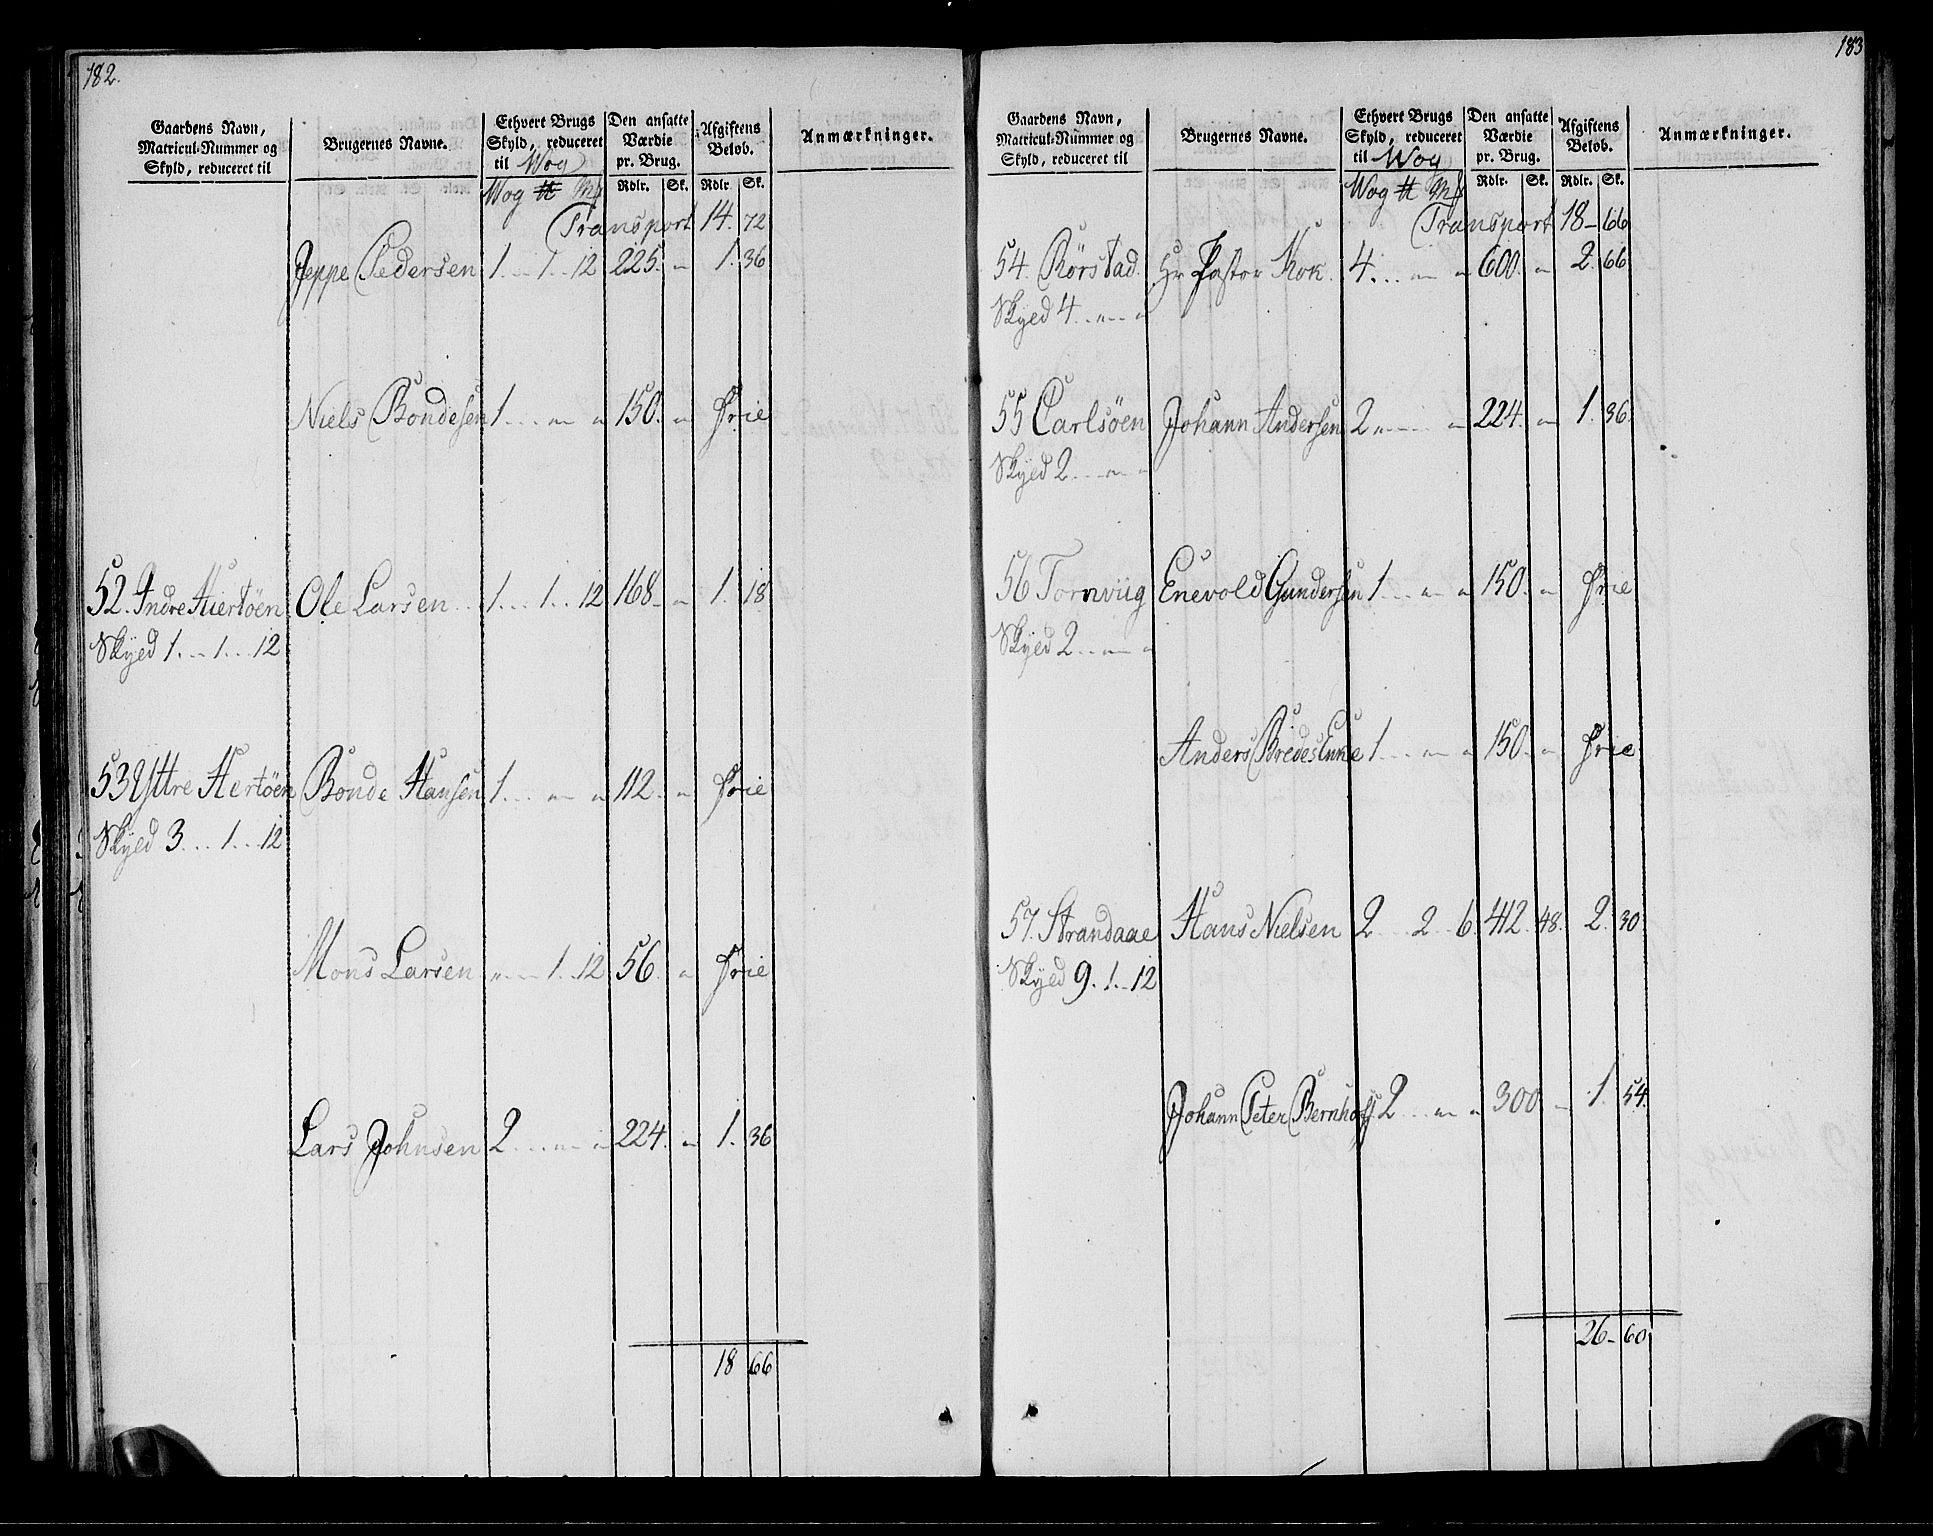 182.
Gaardens Navn, Matricul-Nummer og Skyld, reduceret til
Brugernes Navne.
Ethvert Brugs Skyld, reduceret til Wog
Den ansatte Værdie pr. Brug.
Afgiftens Beløb.
Anmærkninger.
Wog ℔ Mk Rdlr. Sk. Rdlr. Sk.
Transport 14. 72
Jeppe Pedersen 1 .. 1 .. 12 225. " 1. 36
Niels Bondesen 1 ... " " 150. " Frie
52. Indre Hiertöen Ole Larsen .. 1 ... 1 .. 12 168 - " 1. 18
Skyed 1 ... 1 ... 12
53 Yttre Hertöen Bonde Hansen 1 ... " " 112. " Frie
Skyed 3 ... 1 ... 12
Mons Larsen " .... 1 .. 12 56. " Frie
Lars Johnsen 2 .... " " 224. " 1. 36
18 66
183
Gaardens Navn, Matricul-Nummer og Skyld, reduceret til
Brugernes Navne.
Ethvert Brugs Skyld, reduceret til Wog
Den ansatte Værdie pr. Brug.
Afgiftens Beløb.
Anmærkninger.
Wog ℔ Mk Rdlr. Sk. Rdlr. Sk.
Transport 18 - 66
54. Rörstad. Hr Pastor Kok. 4. .. " " 600. " 2. 66
Skyed 4 .. " .. "
55 Carlsöen Johann Andersen 2 " ... " 224. " 1. 36.
Skyed 2 ... " .. "
56 Tornviig Enevold Gundersen 1 ... " " 150. " Frie
Skyed 2 ... " .. "
Anders Bredes Enke 1 ... " " 150. " Frie
57. Strandaae Hans Nielsen 2 .. 2 .. 6. 412. 48. 2. 30.
Skyed 9. 1 .. 12
Johann Peter Bernhoft 2 ... " " 300 - 1. 54.
26 - 60